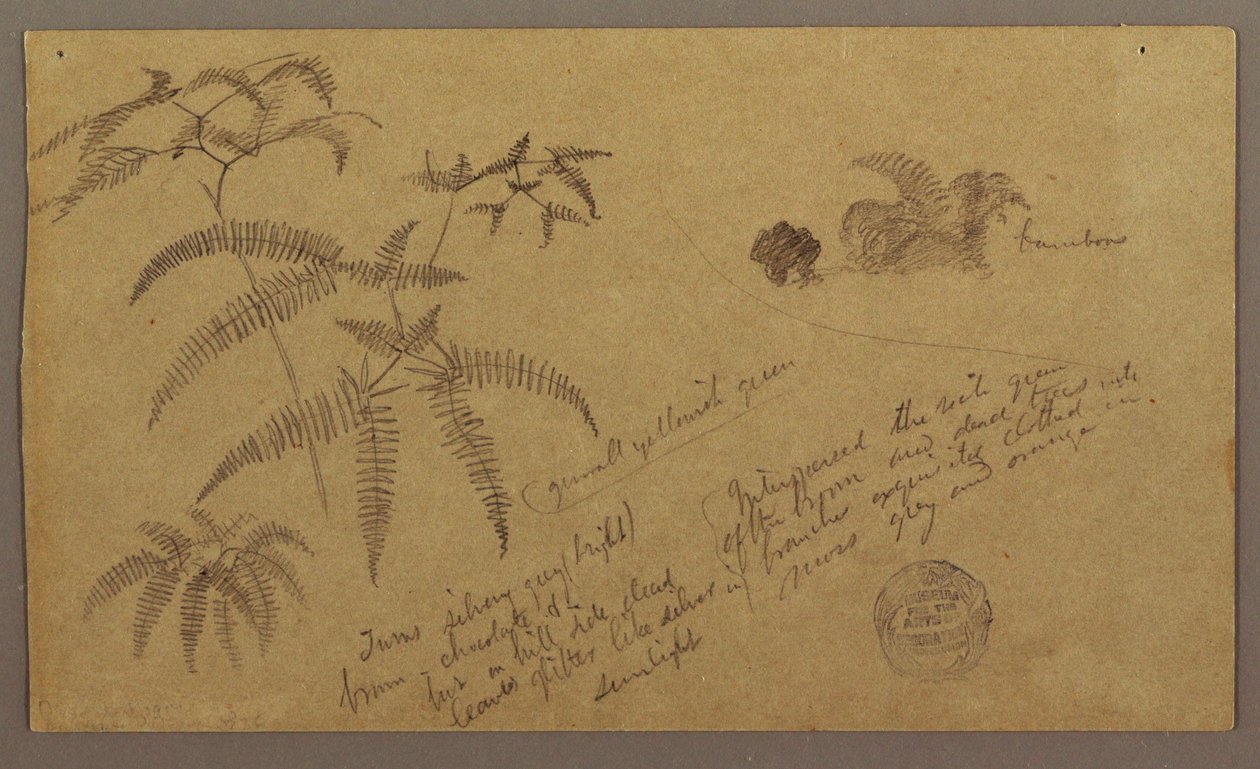 bamboos
small yellowish green
Turns silvery grey (bright)
brown - chocolate &
but on hill side dead
leaves glitter like silver in
sunlight
(Interspersed the rich green
of the broom and dead trees with
branches exquisitely clothed in
moss grey and orange
MUSEUM
FOR THE
ARTS OF
DECORATION